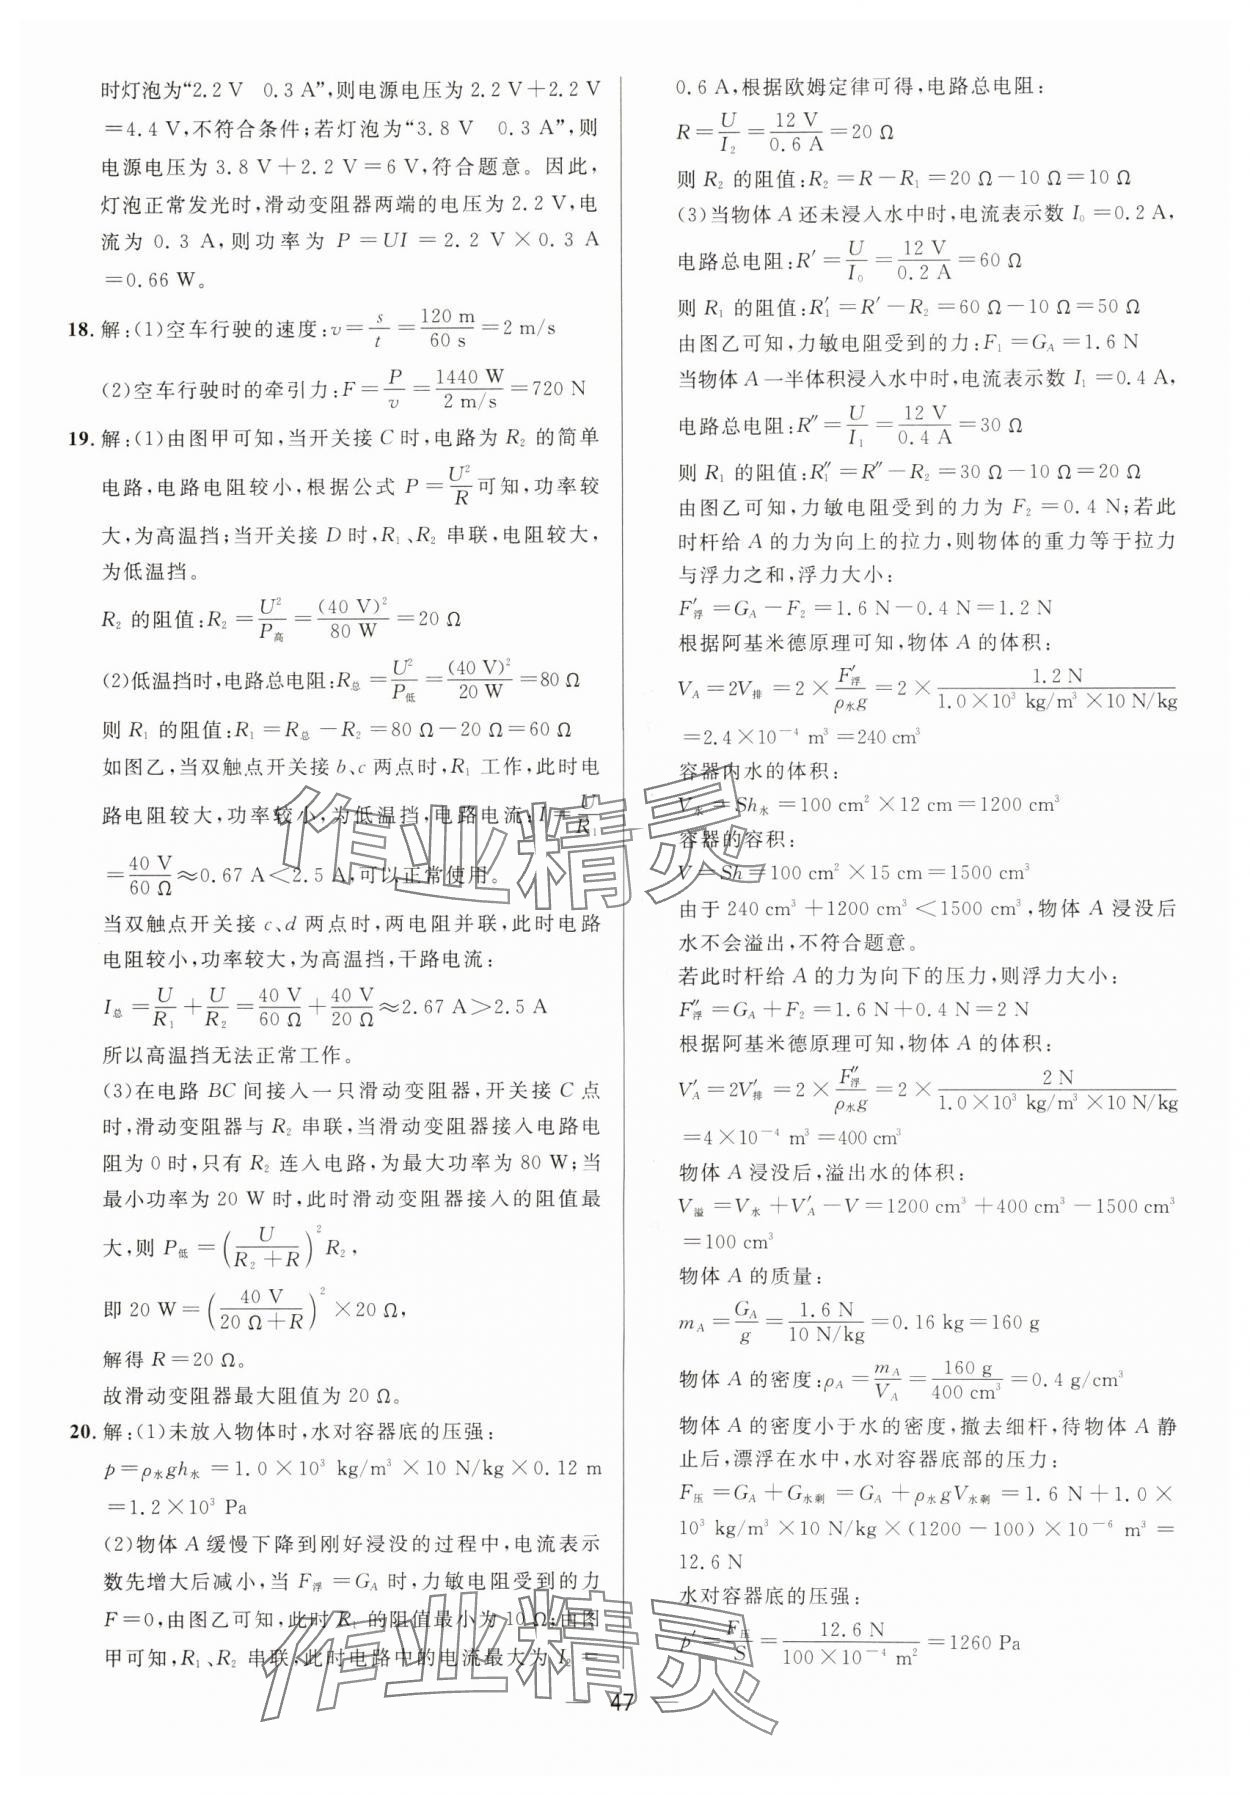 时灯泡为“2.2 V　0.3 A”，则电源电压为 2.2 V＋2.2 V
＝4.4 V，不符合条件；若灯泡为“3.8 V　0.3 A”，则
电源电压为 3.8 V＋2.2 V＝6 V，符合题意。因此，
灯泡正常发光时，滑动变阻器两端的电压为 2.2 V，电
流为 0.3 A，则功率为 P＝UI＝2.2 V×0.3 A
＝0.66 W。
18. 解：(1)空车行驶的速度：v＝s/t＝120 m/60 s＝2 m/s
(2)空车行驶时的牵引力：F＝P/v＝1440 W/2 m/s＝720 N
19. 解：(1)由图甲可知，当开关接 C 时，电路为 R₂ 的简单
电路，电路电阻较小，根据公式 P＝U²/R可知，功率较
大，为高温挡；当开关接 D 时，R₁、R₂ 串联，电阻较大，
为低温挡。
R₂ 的阻值：R₂＝U²/P高＝(40 V)²/80 W＝20 Ω
(2)低温挡时，电路总电阻：R总＝U²/P低＝(40 V)²/20 W＝80 Ω
则 R₁ 的阻值：R₁＝R总－R₂＝80 Ω－20 Ω＝60 Ω
如图乙，当双触点开关接 b、c 两点时，R₁ 工作，此时电
路电阻较大，功率较小，为低温挡，电路电流：I＝U/R₁
＝40 V/60 Ω≈0.67 A＜2.5 A，可以正常使用。
当双触点开关接 c、d 两点时，两电阻并联，此时电路
电阻较小，功率较大，为高温挡，干路电流：
I总＝U/R₁＋U/R₂＝40 V/60 Ω＋40 V/20 Ω≈2.67 A＞2.5 A
所以高温挡无法正常工作。
(3)在电路 BC 间接入一只滑动变阻器，开关接 C 点
时，滑动变阻器与 R₂ 串联，当滑动变阻器接入电路电
阻为 0 时，只有 R₂ 连入电路，为最大功率为 80 W；当
最小功率为 20 W 时，此时滑动变阻器接入的阻值最
大，则 P低＝(U/(R₂＋R))²R₂，
即 20 W＝(40 V/(20 Ω＋R))²×20 Ω，
解得 R＝20 Ω。
故滑动变阻器最大阻值为 20 Ω。
20. 解：(1)未放入物体时，水对容器底的压强：
p＝ρ水gh水＝1.0×10³ kg/m³×10 N/kg×0.12 m
＝1.2×10³ Pa
(2)物体 A 缓慢下降到刚好浸没的过程中，电流表示
数先增大后减小，当 F浮＝G_A 时，力敏电阻受到的力
F＝0，由图乙可知，此时 R₁ 的阻值最小为 10 Ω；由图
甲可知，R₁、R₂ 串联，此时电路中的电流最大为 I₂＝
0.6 A，根据欧姆定律可得，电路总电阻：
R＝U/I₂＝12 V/0.6 A＝20 Ω
则 R₂ 的阻值：R₂＝R－R₁＝20 Ω－10 Ω＝10 Ω
(3)当物体 A 还未浸入水中时，电流表示数 I₀＝0.2 A，
电路总电阻：R′＝U/I₀＝12 V/0.2 A＝60 Ω
则 R₁ 的阻值：R₁′＝R′－R₂＝60 Ω－10 Ω＝50 Ω
由图乙可知，力敏电阻受到的力：F₁＝G_A＝1.6 N
当物体 A 一半体积浸入水中时，电流表示数 I₁＝0.4 A，
电路总电阻：R″＝U/I₁＝12 V/0.4 A＝30 Ω
则 R₁ 的阻值：R₁″＝R″－R₂＝30 Ω－10 Ω＝20 Ω
由图乙可知，力敏电阻受到的力为 F₂＝0.4 N；若此
时杆给 A 的力为向上的拉力，则物体的重力等于拉力
与浮力之和，浮力大小：
F浮′＝G_A－F₂＝1.6 N－0.4 N＝1.2 N
根据阿基米德原理可知，物体 A 的体积：
V_A＝2V排＝2×F浮′/ρ水g＝2×1.2 N/(1.0×10³ kg/m³×10 N/kg)
＝2.4×10⁻⁴ m³＝240 cm³
容器内水的体积：
V水＝Sh水＝100 cm²×12 cm＝1200 cm³
容器的容积：
V＝Sh＝100 cm²×15 cm＝1500 cm³
由于 240 cm³＋1200 cm³＜1500 cm³，物体 A 浸没后
水不会溢出，不符合题意。
若此时杆给 A 的力为向下的压力，则浮力大小：
F浮″＝G_A＋F₂＝1.6 N＋0.4 N＝2 N
根据阿基米德原理可知，物体 A 的体积：
V_A′＝2V排′＝2×F浮″/ρ水g＝2×2 N/(1.0×10³ kg/m³×10 N/kg)
＝4×10⁻⁴ m³＝400 cm³
物体 A 浸没后，溢出水的体积：
V溢＝V水＋V_A′－V＝1200 cm³＋400 cm³－1500 cm³
＝100 cm³
物体 A 的质量：
m_A＝G_A/g＝1.6 N/10 N/kg＝0.16 kg＝160 g
物体 A 的密度：ρ_A＝m_A/V_A＝160 g/400 cm³＝0.4 g/cm³
物体 A 的密度小于水的密度，撤去细杆，待物体 A 静
止后，漂浮在水中，水对容器底部的压力：
F压＝G_A＋G水剩＝G_A＋ρ水gV水剩＝1.6 N＋1.0×
10³ kg/m³×10 N/kg×(1200－100)×10⁻⁶ m³＝
12.6 N
水对容器底的压强：
p′＝F压/S＝12.6 N/(100×10⁻⁴ m²)＝1260 Pa
47
作业精灵
作业精灵